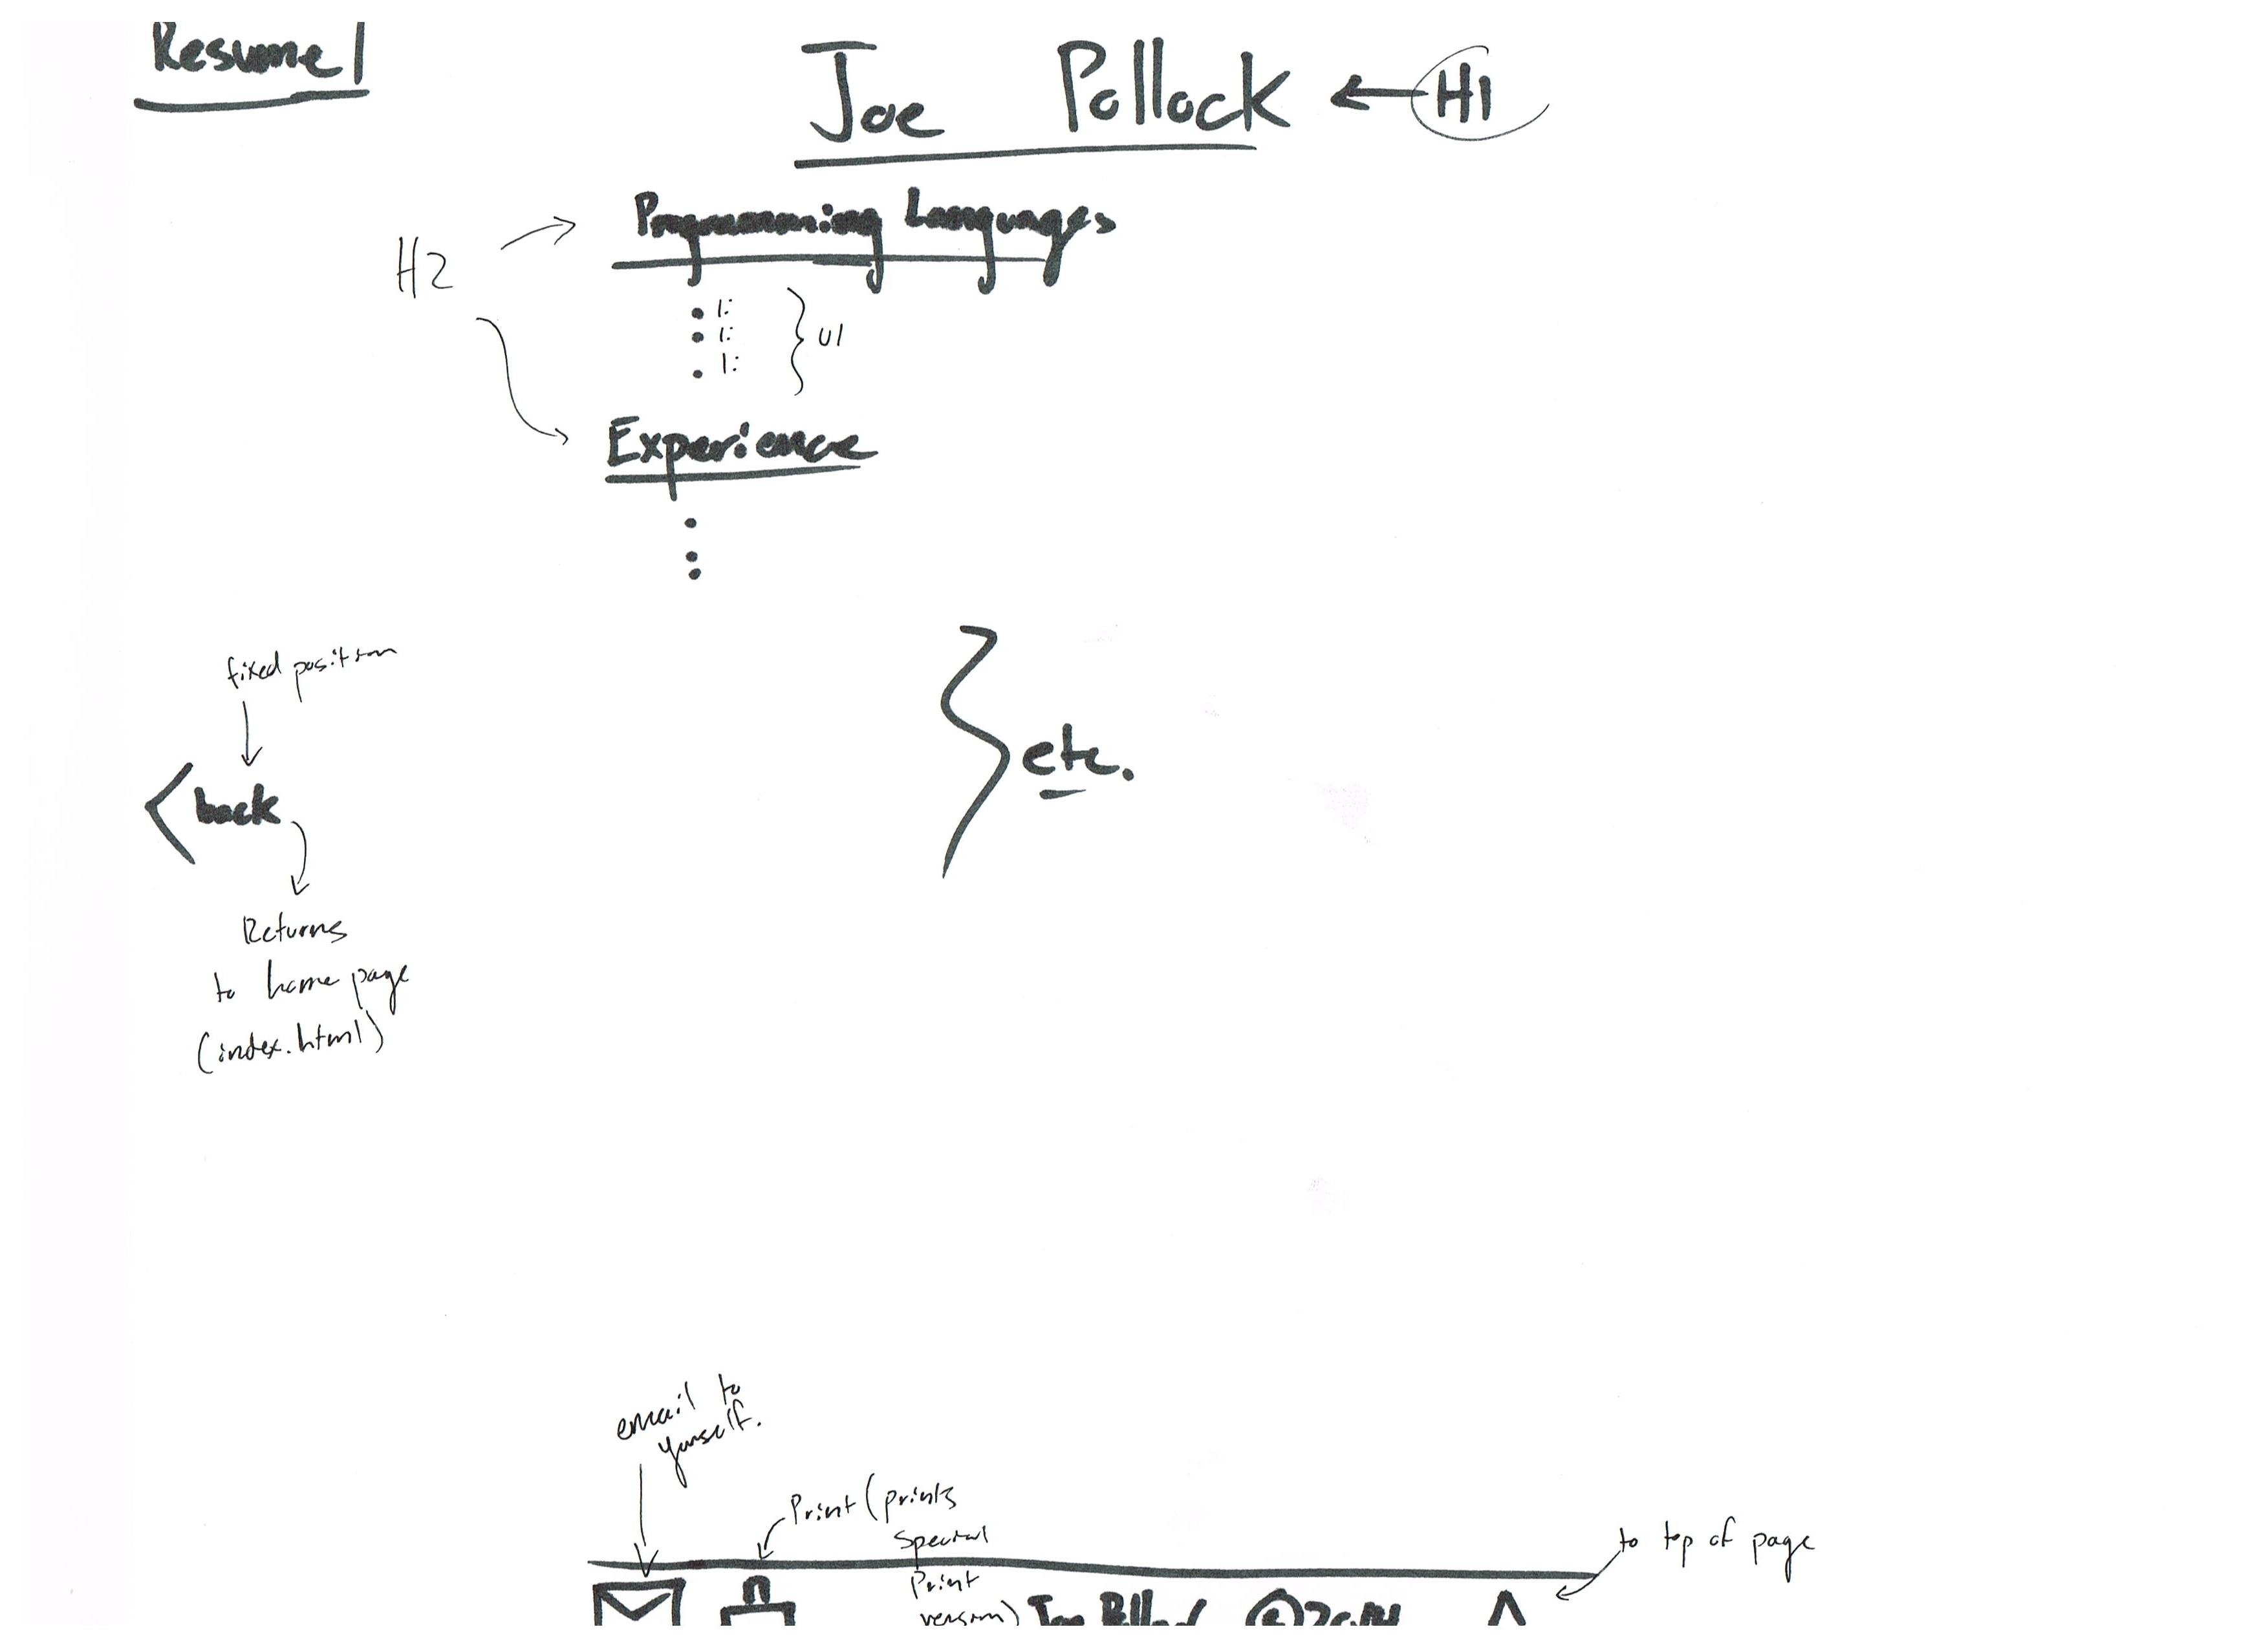 Resume
Joe Pollock
H1
H2
Programming Languages
li
li
li
ul
Experience
fixed position
back
etc.
Returns
to home page
(index.html)
email to
yourself.
Print (prints
special
Print
version)
to top of page
Joe Pollock ©